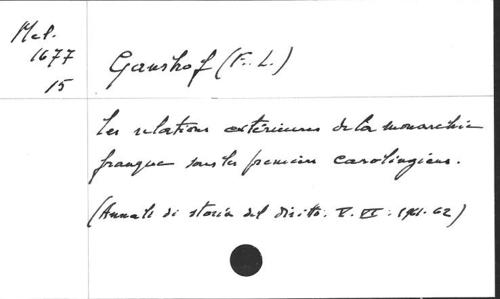 Mel.
1677
15
Ganshof (F. L.)
Les relations extérieures de la monarchie
franque sous les premiers carolingiens.
(Annali di storia del diritto. V. VI. 1961-62)